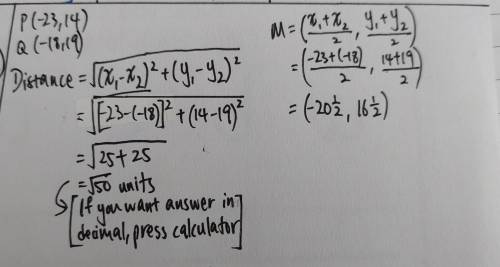 P(-23,14)
Q(-18,19)
Distance = √((x₁-x₂)² + (y₁-y₂)²)
= √([-23-(-18)]² + (14-19)²)
= √(25+25)
= √50 units
[If you want answer in
decimal, press calculator]
M = ((x₁+x₂)/2, (y₁+y₂)/2)
= ((-23+(-18))/2, (14+19)/2)
= (-20½, 16½)